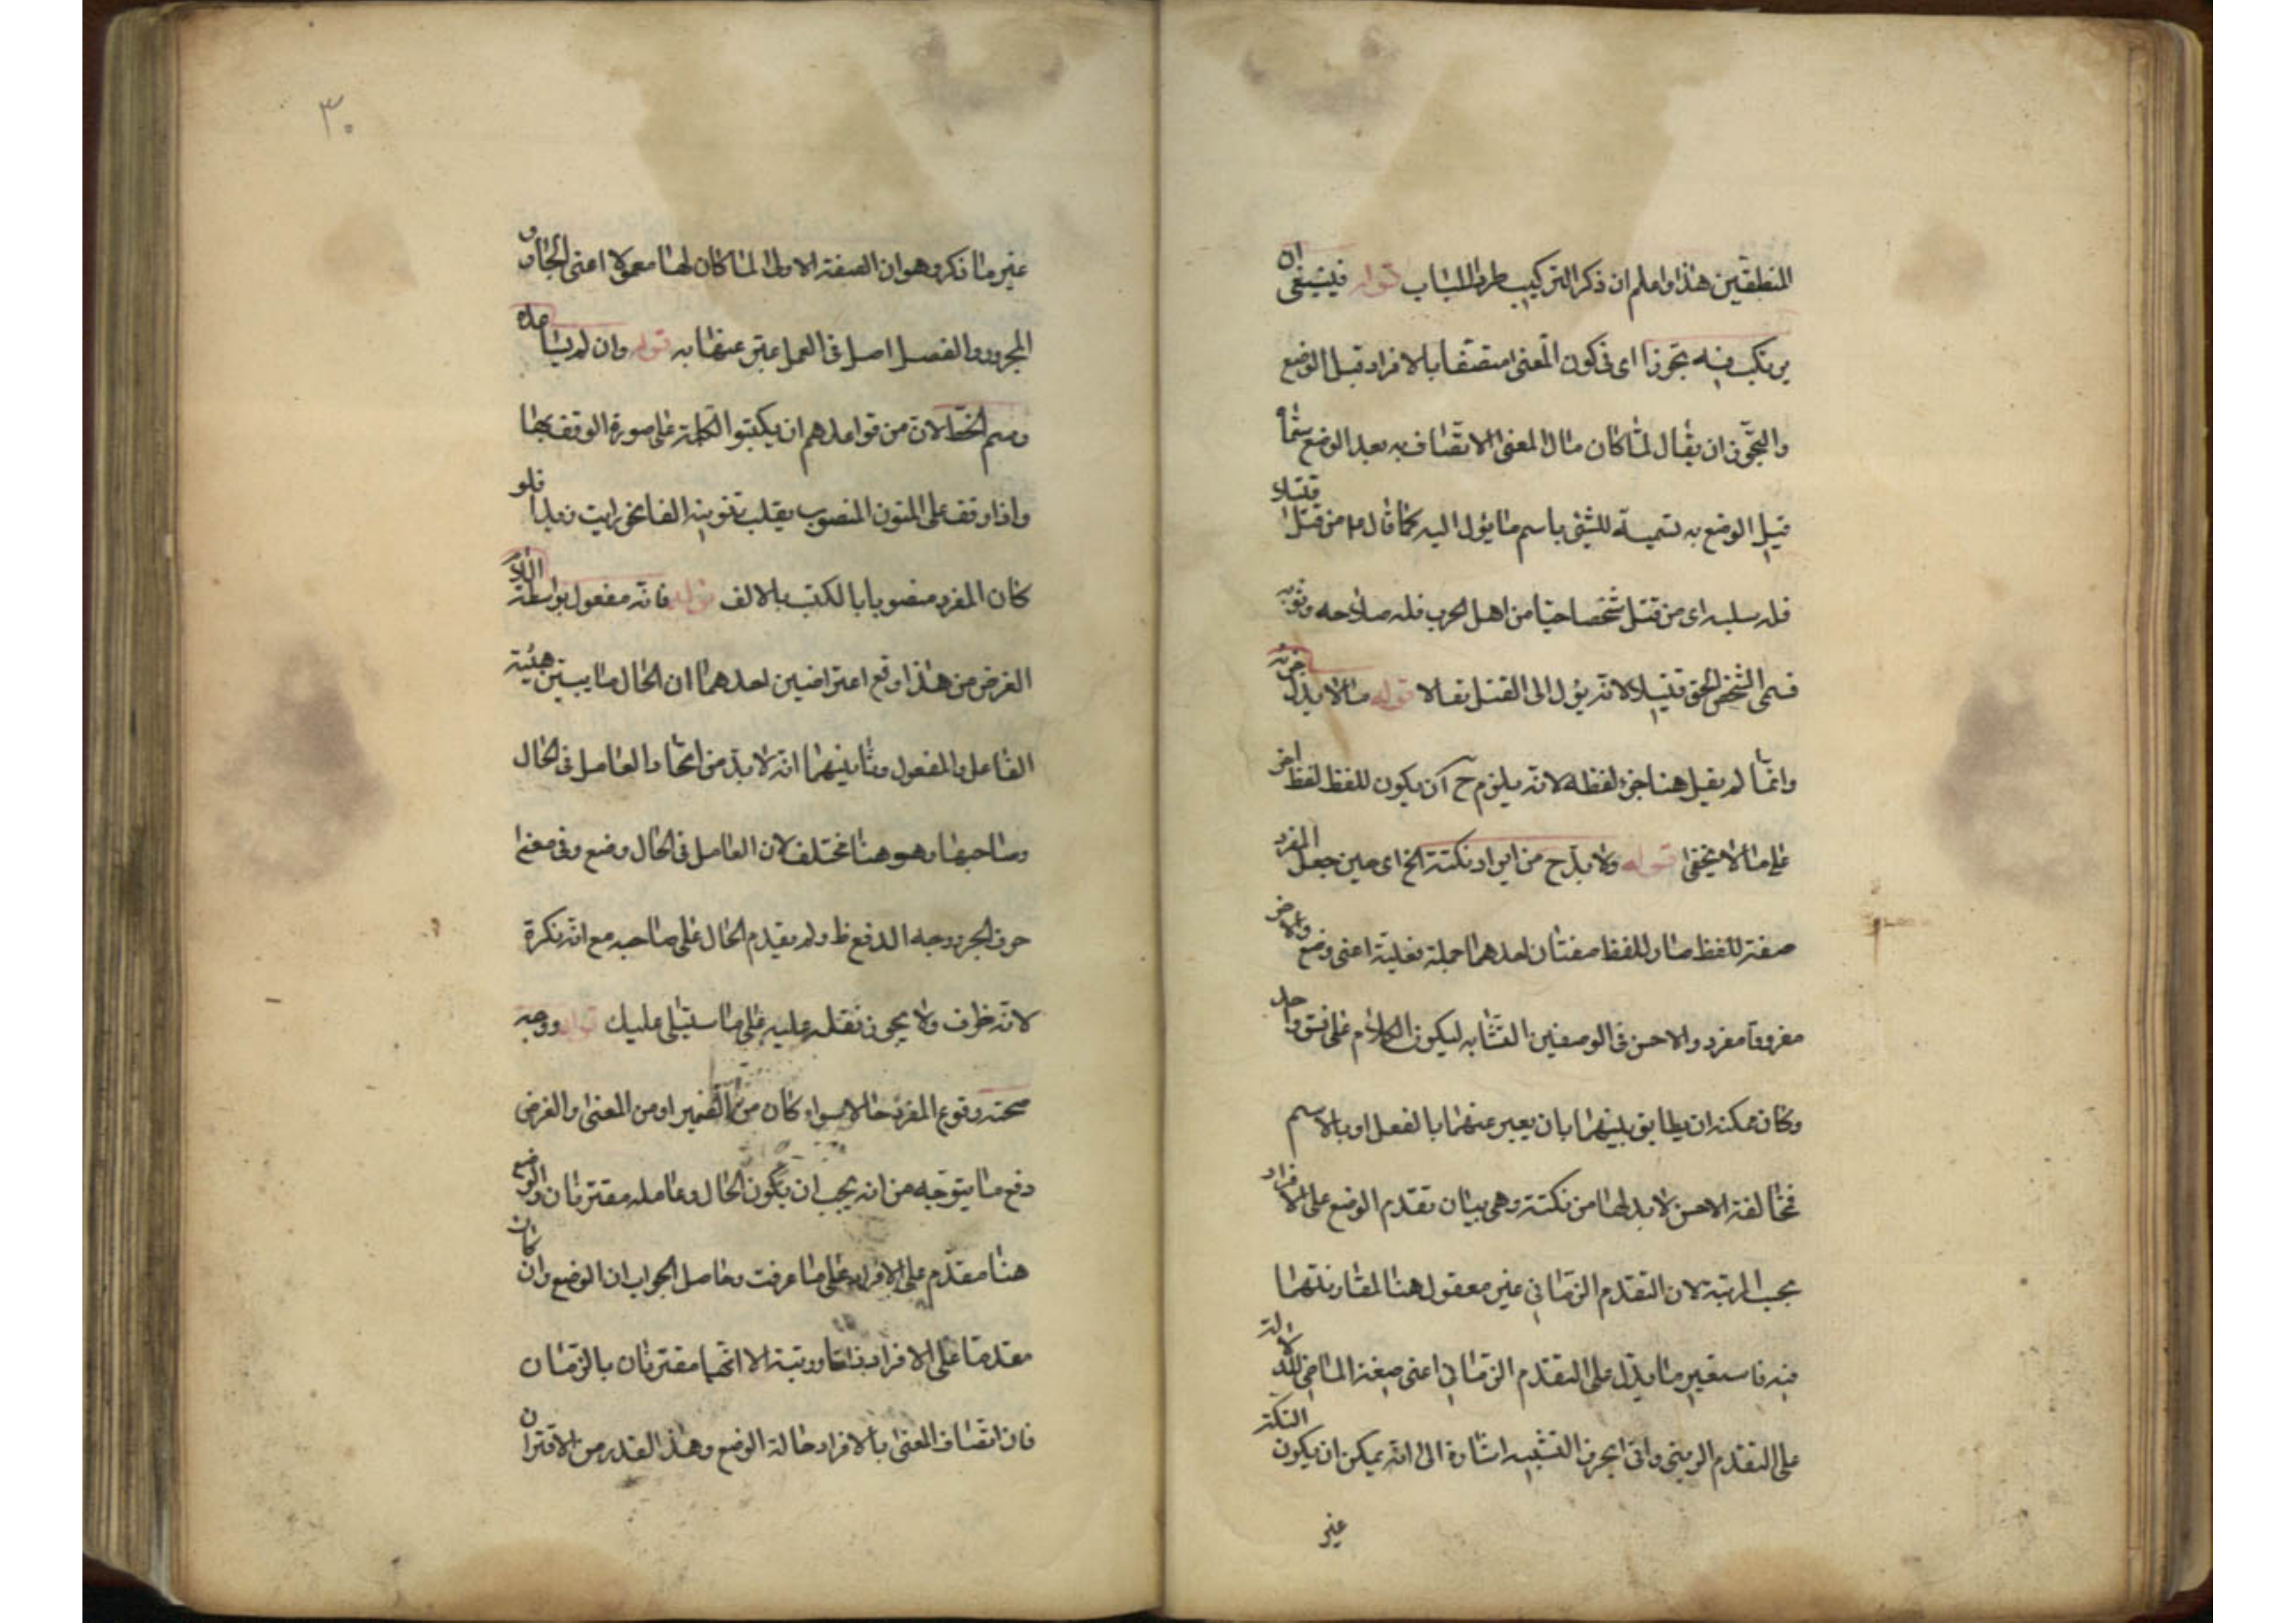 المنطقين هذا واعلم ان ذكر التركيب طردا للباب قوله فينبغي ان
يرتكب فيه تجوزا اى فى كون المعنى متصفا بالافراد قبل الوضع
والتجوزان يقال لما كان مال المعنى الاتصاف به بعد الوضع سماه
قبل الوضع به تسمية للشئ باسم ما يؤل اليه كما قال من قتل قتيلا
فله سلبه اى من قتل شخصا حيا من اهل الحرب فله سلاحه وثوبه
فسمى الشخص الحى قتيلا لانه يؤل الى القتل تفالا قوله ما لا يدل جزئه
وانما لم يقل هنا جزء لفظه لانه يلزم ح ان يكون للفظ لفظ اخر
على ما لا يخفى قوله ولا بد ح من ايراد نكتة الخ اى حين جعل المفرد
صفة للفظ صار للفظ صفتان احدهما جملة فعلية اعنى وضع والاخر
مفردة مفرد والاحسن فى الوصفين التشابه ليكون الكلام على نسق واحد
وكان يمكنه ان يطابق بينهما بان يعبر عنهما بالفعل او بالاسم
فمخالفة الاحسن لا بد لها من نكتة وهى بيان تقدم الوضع على الافراد
بحسب المرتبة لان التقدم الزمانى غير معقول هنا لمقارنتهما
فيه فاستعير ما يدل على التقدم الزمانى اعنى صيغة الماضى للدلالة
على التقدم الرتبى واتى بحرف التشبيه اشارة الى انه يمكن ان يكون النكتة
غير
٣٠
غير ما ذكر وهو ان الصفة الاولى لما كان لها معمولا اعنى الجار و
المجرور والفعل اصل فى العمل عبر عنها به قوله وان لم يساعده
رسم الخط لان من قواعدهم ان يكتبوا الكلمة على صورة الوقف بها
واذا وقف على المنون المنصوب يقلب تنوينه الفا نحو رايت زيدا فلو
كان المفرد منصوبا بالكتب بالالف قوله فانه مفعول بواسطة اللام
الغرض من هذا دفع اعتراضين احدهما ان الحال ما يبين هيئة
الفاعل والمفعول وثانيهما انه لا بد من اتحاد العامل فى الحال
وصاحبها وهو هنا مختلف لان العامل فى الحال وضع وفى معنى
حرف الجر ووجه الدفع ظ ولم يقدم الحال على صاحبه مع انه نكرة
لانه ظرف ولا يجوز تقدمه عليه على ما سيتلى عليك قوله ووجه
صحة وقوع المفرد حالا سواء كان من الضمير او من المعنى والغرض
دفع ما يتوجه من انه يجب ان يكون الحال وعامله مقترنان والوضع
هنا مقدم على الافراد على ما عرفت وحاصل الجواب ان الوضع وان كان
مقدما على الافراد ذاتا ورتبة الا انهما مقترنان بالزمان
فان اتصاف المعنى بالافراد حالة الوضع وهذا القدر من الاقتران